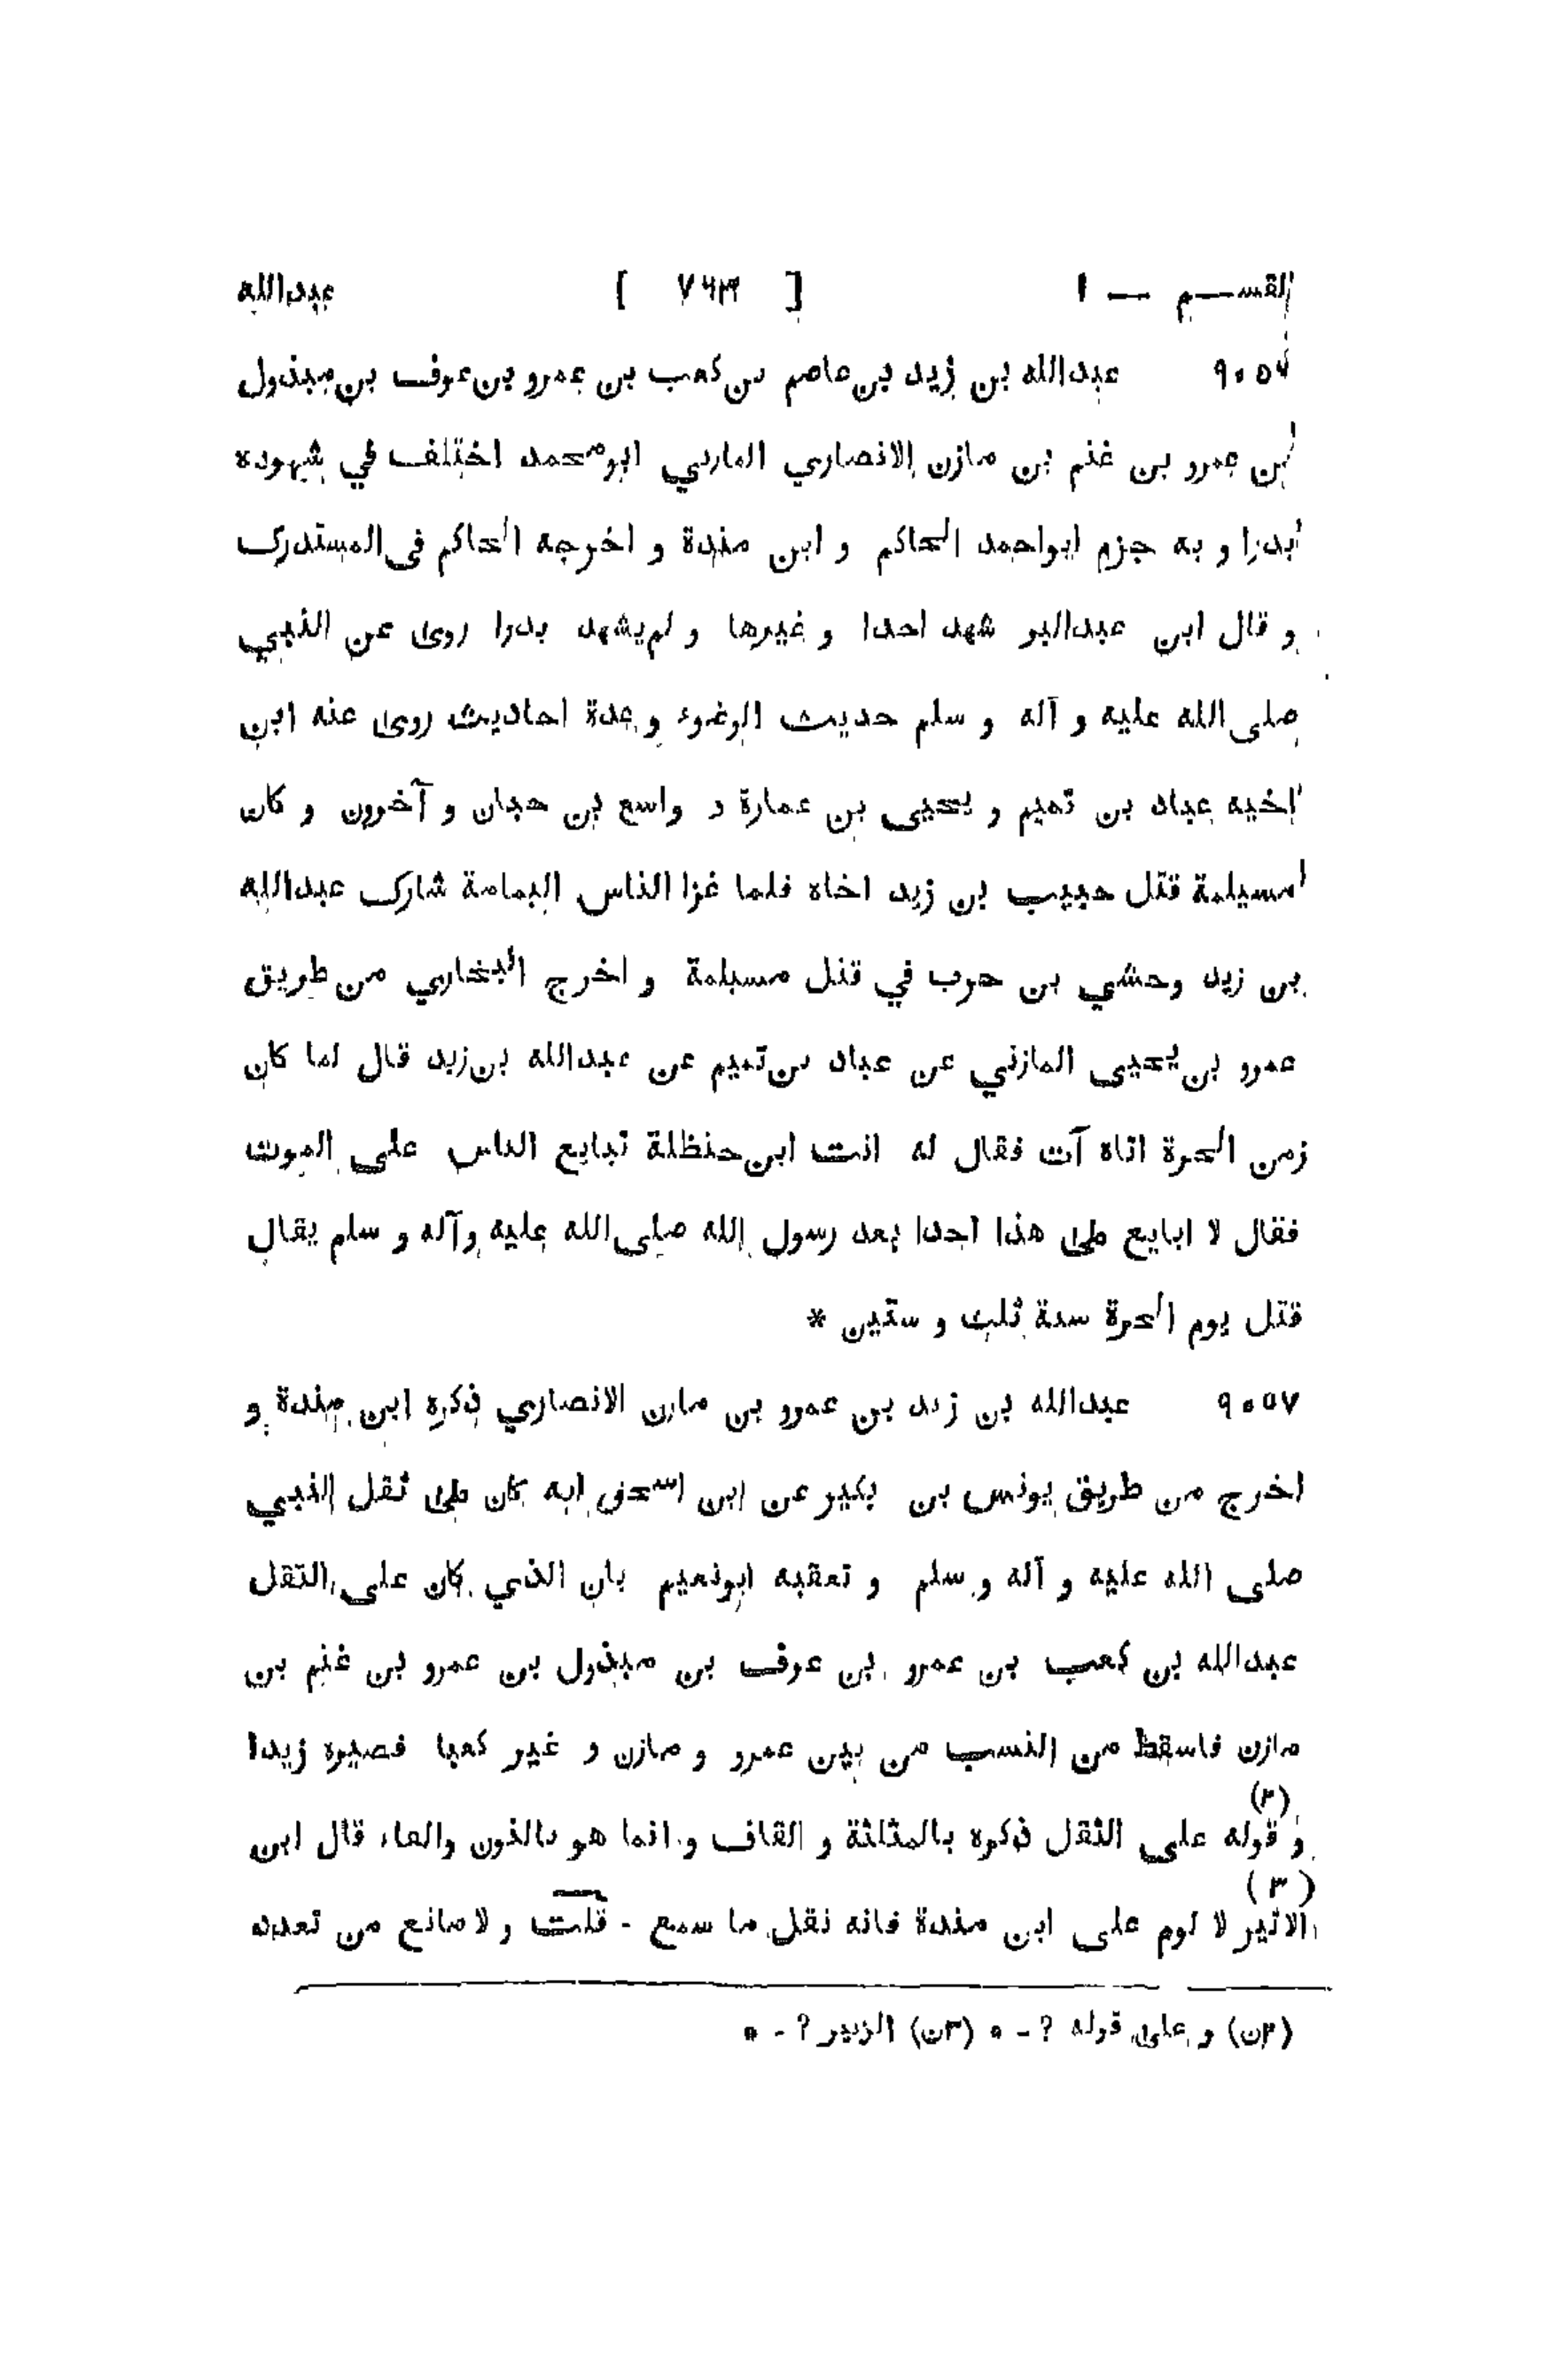 القسم — ١ [ ٧٦٣ ] عبدالله
٩٠٥٦ عبدالله بن زيد بن عاصم بن كعب بن عمرو بن عوف بن مبذول
بن عمرو بن غنم بن مازن الانصاري المازني ابومحمد اختلف في شهوده
بدرا و به جزم ابواحمد الحاكم و ابن مندة و اخرجه الحاكم في المستدرك
و قال ابن عبدالبر شهد احدا و غيرها و لم يشهد بدرا روى عن النبي
صلى الله عليه و آله و سلم حديث الوضوء و عدة احاديث روى عنه ابن
اخيه عباد بن تميم و يحيى بن عمارة و واسع بن حبان و آخرون و كان
مسيلمة قتل حبيب بن زيد اخاه فلما غزا الناس اليمامة شارك عبدالله
بن زيد وحشي بن حرب في قتل مسيلمة و اخرج البخاري من طريق
عمرو بن يحيى المازني عن عباد بن تميم عن عبدالله بن زيد قال لما كان
زمن الحرة اتاه آت فقال له انت ابن حنظلة تبايع الناس على الموت
فقال لا ابايع على هذا احدا بعد رسول الله صلى الله عليه وآله و سلم يقال
قتل يوم الحرة سنة ثلث و ستين *
٩٠٥٧ عبدالله بن زيد بن عمرو بن مازن الانصاري ذكره ابن مندة و
اخرج من طريق يونس بن بكير عن ابن اسحق انه كان على ثقل النبي
صلى الله عليه و آله و سلم و تعقبه ابونعيم بان الذي كان على الثقل
عبدالله بن كعب بن عمرو بن عوف بن مبذول بن عمرو بن غنم بن
مازن فاسقط من النسب من بين عمرو و مازن و غير كعبا فصيره زيدا
(٢)
و قوله على الثقل ذكره بالمثلثة و القاف و انما هو بالنون والفاء قال ابن
(٣)
الاثير لا لوم على ابن مندة فانه نقل ما سمع - قلت و لا مانع من تعدد
(٢ن) و على قوله ? - * (٣ن) الزبير ? - *